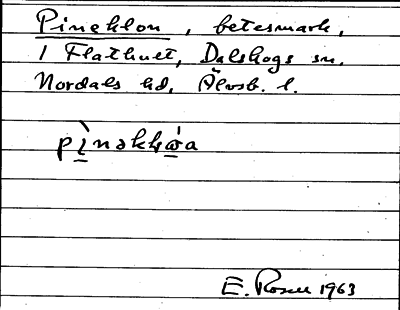 Pineklon, betesmark,
1 Flathult, Dalskogs sn.
Nordals hd, Älvsb. l.
E. Rosell 1963